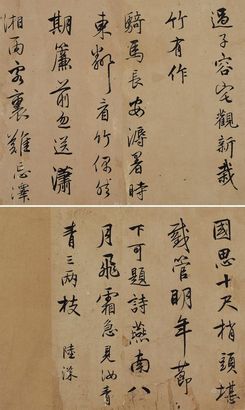 過子容宅觀新栽
竹有作
騎馬長安溽暑時
東鄰看竹偶
期簾前忽送瀟
湘雨客裏難忘澤
國思十尺梢頭堪
截管明年節
下可題詩燕南八
月飛霜急見汝青
青三兩枝 陸深